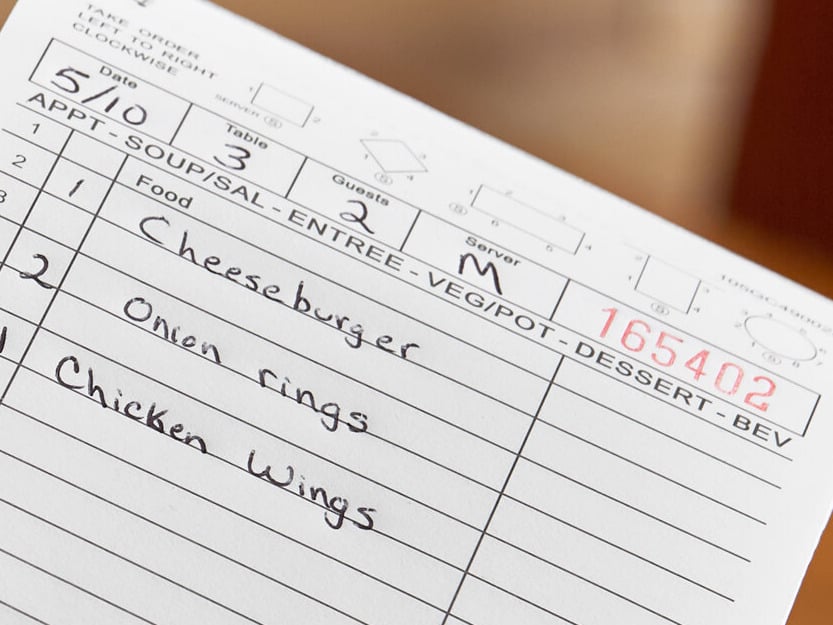 TAKE ORDER
LEFT TO RIGHT
CLOCKWISE
SERVER S
Date Table Guests Server
5/10 3 2 M 165402
APPT - SOUP/SAL - ENTREE - VEG/POT - DESSERT - BEV
Food
1
2 1 Cheeseburger
3 2 Onion rings
1 Chicken Wings